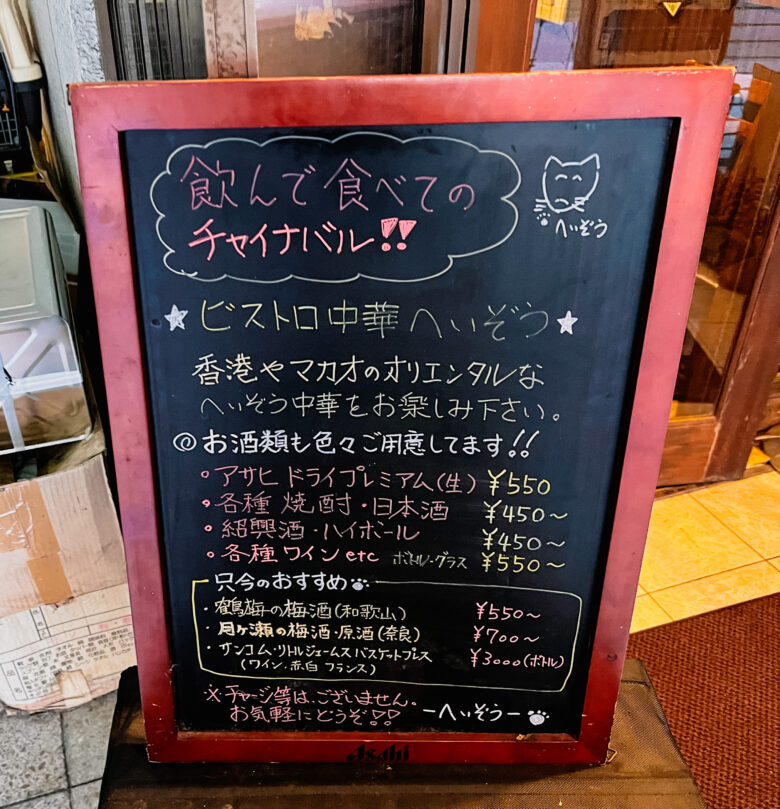 飲んで食べての
チャイナバル!!
へいぞう
★ビストロ中華へいぞう★
香港やマカオのオリエンタルな
へいぞう中華をお楽しみ下さい。
◎お酒類も色々ご用意してます!!
・アサヒ ドライプレミアム(生) ¥550
・各種 焼酎・日本酒 ¥450〜
・紹興酒・ハイボール ¥450〜
・各種ワインetc ボトル・グラス ¥550〜
只今のおすすめ
・鶴梅の梅酒(和歌山) ¥550〜
・月ヶ瀬の梅酒・原酒(奈良) ¥700〜
・サンコム・リトルジェームスバスケットプレス ¥3000(ボトル)
(ワイン・赤.白 フランス)
※チャージ等は、ございません。
お気軽にどうぞ♡♡ ーへいぞうー
Asahi